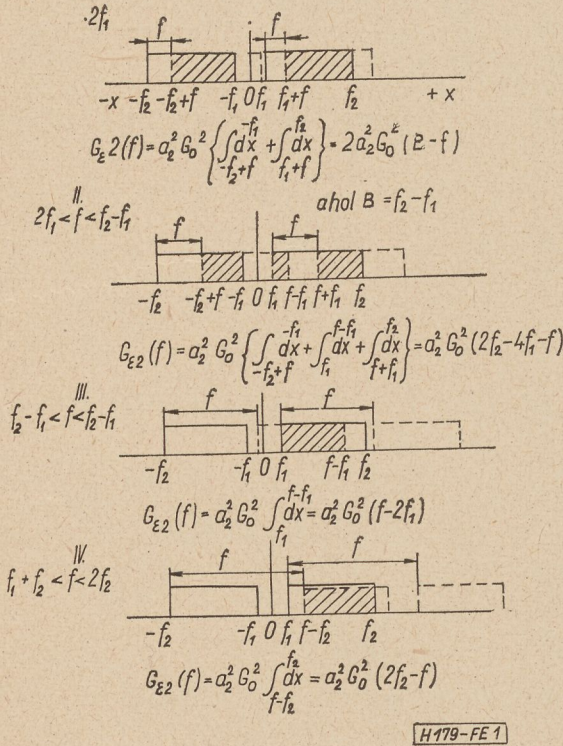 ·2f₁
f f
-x -f₂ -f₂+f -f₁ 0 f₁ f₁+f f₂ +x
G_ε2(f) = a₂² G₀² { ∫_{-f₂+f}^{-f₁} dx + ∫_{f₁+f}^{f₂} dx } = 2a₂² G₀² (B-f)
ahol B = f₂-f₁
II.
2f₁ < f < f₂-f₁
f f
-f₂ -f₂+f -f₁ 0 f₁ f-f₁ f+f₁ f₂
G_ε2(f) = a₂² G₀² { ∫_{-f₂+f}^{-f₁} dx + ∫_{f₁}^{f-f₁} dx + ∫_{f+f₁}^{f₂} dx } = a₂² G₀² (2f₂-4f₁-f)
III.
f₂-f₁ < f < f₂-f₁
f f
-f₂ -f₁ 0 f₁ f-f₁ f₂
G_ε2(f) = a₂² G₀² ∫_{f₁}^{f-f₁} dx = a₂² G₀² (f-2f₁)
IV.
f₁+f₂ < f < 2f₂
f f
-f₂ -f₁ 0 f₁ f-f₂ f₂
G_ε2(f) = a₂² G₀² ∫_{f-f₂}^{f₂} dx = a₂² G₀² (2f₂-f)
H179-FE 1